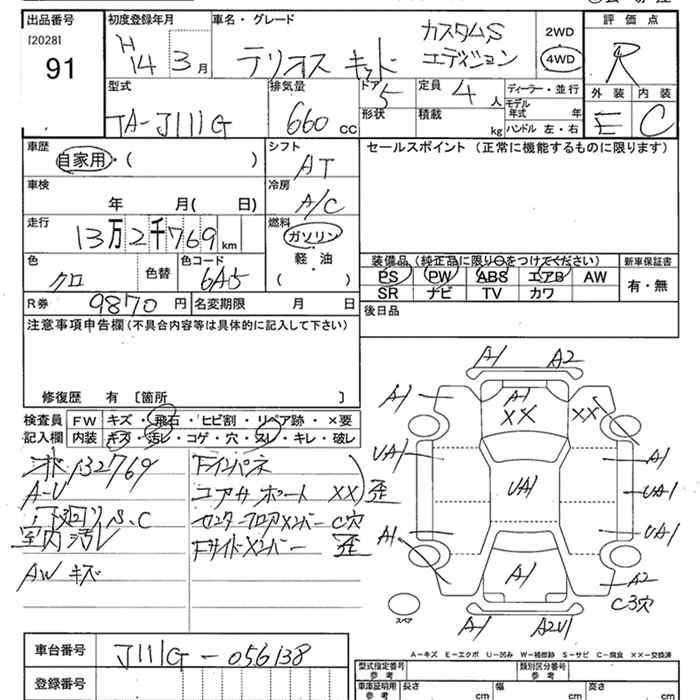 出品番号
[20281]
91
初度登録年月
H14 3月
車名・グレード
テリオス キッド
カスタムS
エディション
2WD
4WD
評価点
R
外装 内装
E C
型式
TA-J111G
排気量
660 cc
ドア 5
形状
定員 4 人
積載 kg
ディーラー・並行
モデル年式 年
ハンドル 左・右
車歴
自家用・( )
シフト
AT
セールスポイント (正常に機能するものに限ります)
車検
年 月( 日)
冷房
A/C
走行
13万2千769 km
燃料
ガソリン
軽・油
( )
色
クロ
色替
色コード
6A5
装備品 (純正品に限り○をつけてください)
PS PW ABS エアB AW
SR ナビ TV カワ
新車保証書
有・無
R券 9870 円
名変期限 月 日
後日品
注意事項申告欄 (不具合内容等は具体的に記入して下さい)
修復歴 有 [箇所 ]
検査員
記入欄
FW キズ・飛石・ヒビ割・リペア跡・×要
内装 キズ・汚レ・コゲ・穴・スレ・キレ・破レ
132769
A-U
下廻りS、C
室内汚レ
AW キズ
Fインパネ
コアサポート XX 歪
センターフロアメンバー C穴
Fサイドメンバー 歪
A1 A2
A1 A1 XX XX
UA1 A1
UA1 UA1
A1 UA1
A1 A2
C3穴
A1 A2U1
スペア
A-キズ E-エクボ U-凹み W-補修跡 S-サビ C-腐食 XX-交換済
車台番号
J111G-056138
登録番号
型式指定番号
参考
類別区分番号
参考
車庫証明用
参考
長さ cm 幅 cm 高さ cm